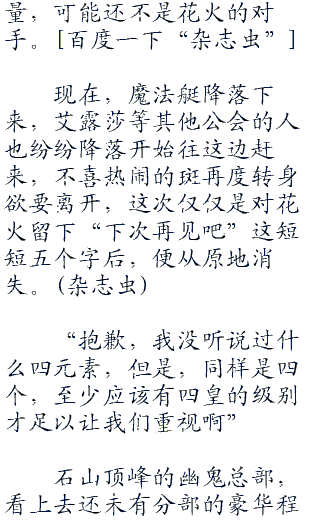 量，可能还不是花火的对
手。[百度一下“杂志虫”]
现在，魔法艇降落下
来，艾露莎等其他公会的人
也纷纷降落开始往这边赶
来，不喜热闹的斑再度转身
欲要离开，这次仅仅是对花
火留下“下次再见吧”这短
短五个字后，便从原地消
失。(杂志虫)
“抱歉，我没听说过什
么四元素，但是，同样是四
个，至少应该有四皇的级别
才足以让我们重视啊”
石山顶峰的幽鬼总部，
看上去还未有分部的豪华程